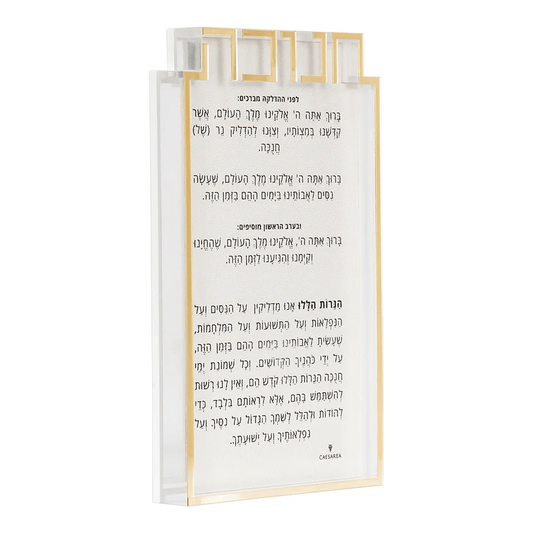 חנוכה
לפני ההדלקה מברכים:
בָּרוּךְ אַתָּה ה' אֱלֹקֵינוּ מֶלֶךְ הָעוֹלָם, אֲשֶׁר
קִדְּשָׁנוּ בְּמִצְוֹתָיו, וְצִוָּנוּ לְהַדְלִיק נֵר (שֶׁל)
חֲנֻכָּה.
בָּרוּךְ אַתָּה ה' אֱלֹקֵינוּ מֶלֶךְ הָעוֹלָם, שֶׁעָשָׂה
נִסִּים לַאֲבוֹתֵינוּ בַּיָּמִים הָהֵם בַּזְּמַן הַזֶּה.
ובערב הראשון מוסיפים:
בָּרוּךְ אַתָּה ה', אֱלֹקֵינוּ מֶלֶךְ הָעוֹלָם, שֶׁהֶחֱיָנוּ
וְקִיְּמָנוּ וְהִגִּיעָנוּ לַזְּמַן הַזֶּה.
הַנֵּרוֹת הַלָּלוּ אָנוּ מַדְלִיקִין עַל הַנִּסִּים וְעַל
הַנִּפְלָאוֹת וְעַל הַתְּשׁוּעוֹת וְעַל הַמִּלְחָמוֹת,
שֶׁעָשִׂיתָ לַאֲבוֹתֵינוּ בַּיָּמִים הָהֵם בַּזְּמַן הַזֶּה,
עַל יְדֵי כֹּהֲנֶיךָ הַקְּדוֹשִׁים. וְכָל שְׁמוֹנַת יְמֵי
חֲנֻכָּה הַנֵּרוֹת הַלָּלוּ קֹדֶשׁ הֵם, וְאֵין לָנוּ רְשׁוּת
לְהִשְׁתַּמֵּשׁ בָּהֶם, אֶלָּא לִרְאוֹתָם בִּלְבַד, כְּדֵי
לְהוֹדוֹת וּלְהַלֵּל לְשִׁמְךָ הַגָּדוֹל עַל נִסֶּיךָ וְעַל
נִפְלְאוֹתֶיךָ וְעַל יְשׁוּעָתֶךָ.
CAESAREA